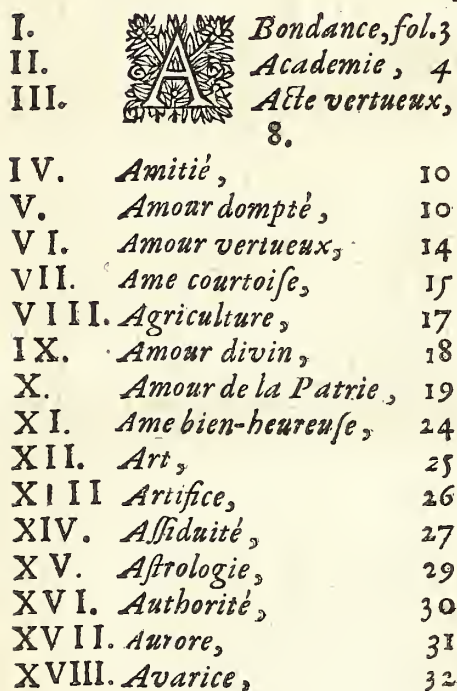 I. ABondance, fol.3
II. Academie, 4
III. Acte vertueux,
8.
IV. Amitié, 10
V. Amour dompté, 10
VI. Amour vertueux, 14
VII. Ame courtoiſe, 15
VIII. Agriculture, 17
IX. Amour divin, 18
X. Amour de la Patrie, 19
XI. Ame bien-heureuſe, 24
XII. Art, 25
XIII Artifice, 26
XIV. Aſſiduité, 27
XV. Aſtrologie, 29
XVI. Authorité, 30
XVII. Aurore, 31
XVIII. Avarice, 32